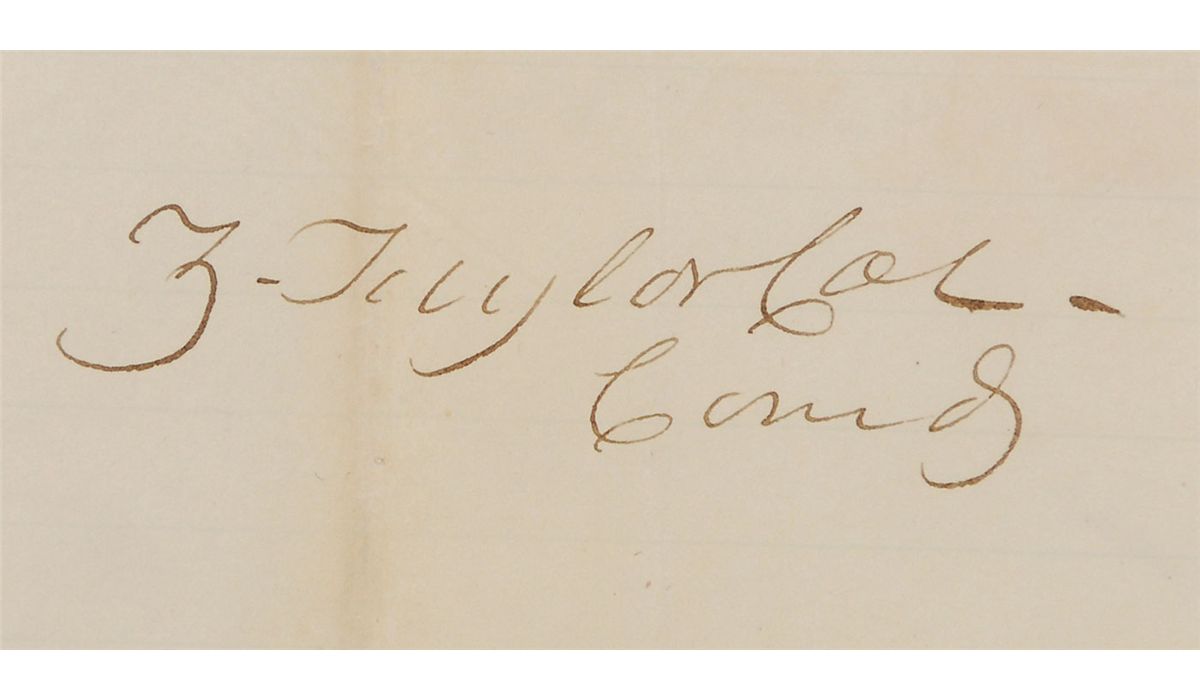 Z - Taylor Col -
Comd